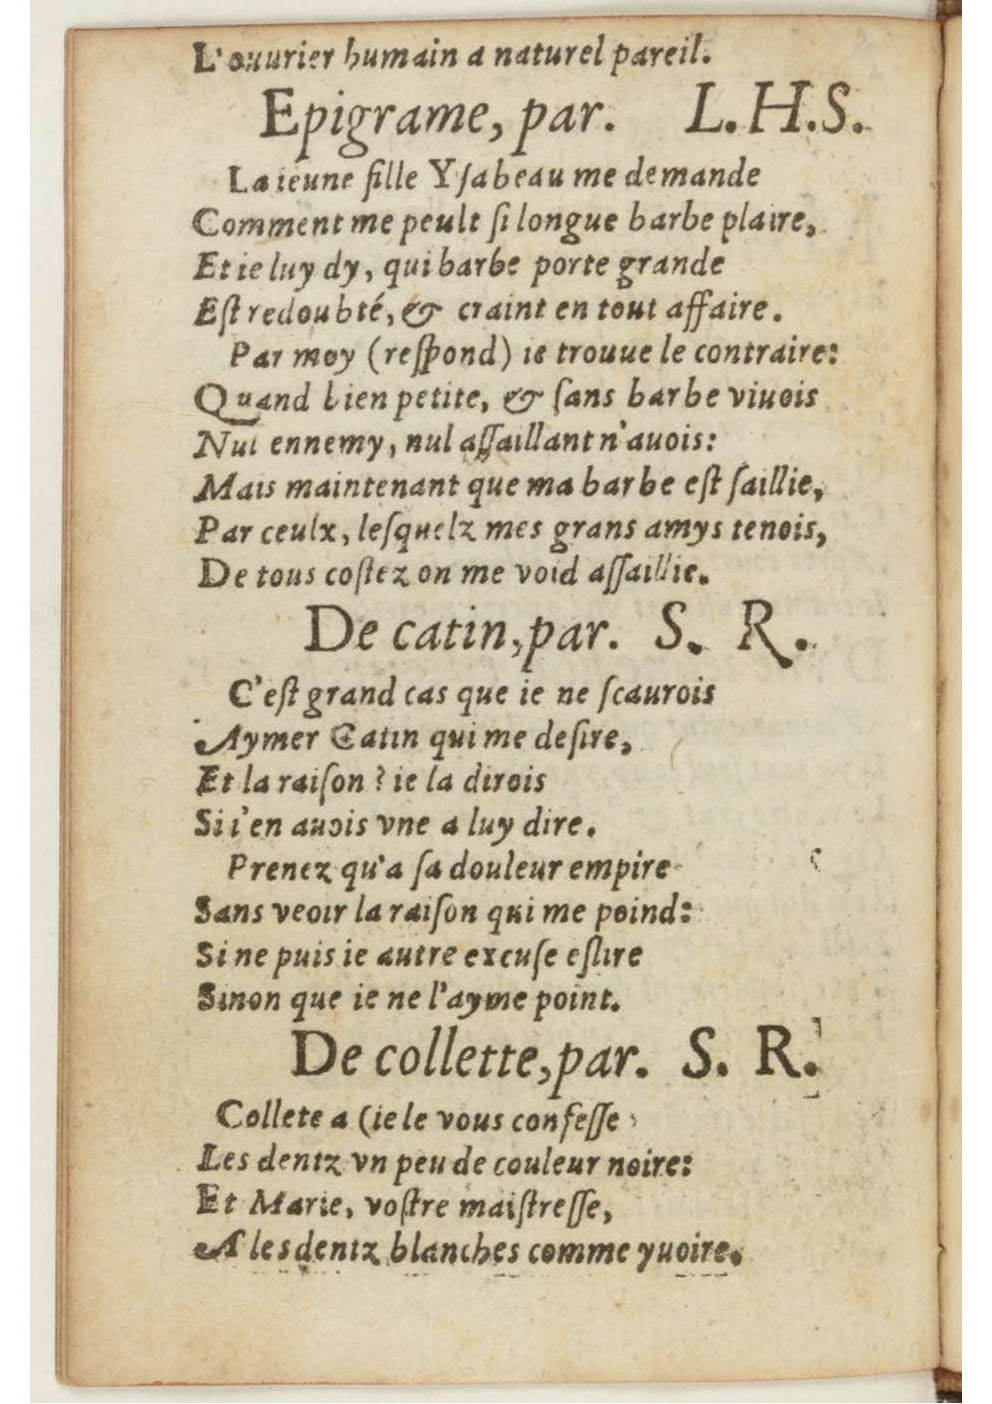 L'ouurier humain a naturel pareil.
Epigrame, par. L. H. S.
La ieune fille Ysabeau me demande
Comment me peult si longue barbe plaire,
Et ie luy dy, qui barbe porte grande
Est redoubté, & craint en tout affaire.
Par moy (respond) ie trouue le contraire:
Quand bien petite, & sans barbe viuois
Nul ennemy, nul assaillant n'auois:
Mais maintenant que ma barbe est saillie,
Par ceulx, lesquelz mes grans amys tenois,
De tous costez on me void assaillie.
De catin, par. S. R.
C'est grand cas que ie ne scaurois
Aymer Catin qui me desire,
Et la raison ? ie la dirois
Si i'en auois vne a luy dire.
Prenez qu'a sa douleur empire
Sans veoir la raison qui me poind:
Si ne puis ie autre excuse eslire
Sinon que ie ne l'ayme point.
De collette, par. S. R.
Collete a (ie le vous confesse)
Les dentz vn peu de couleur noire:
Et Marie, vostre maistresse,
A les dentz blanches comme yuoire.